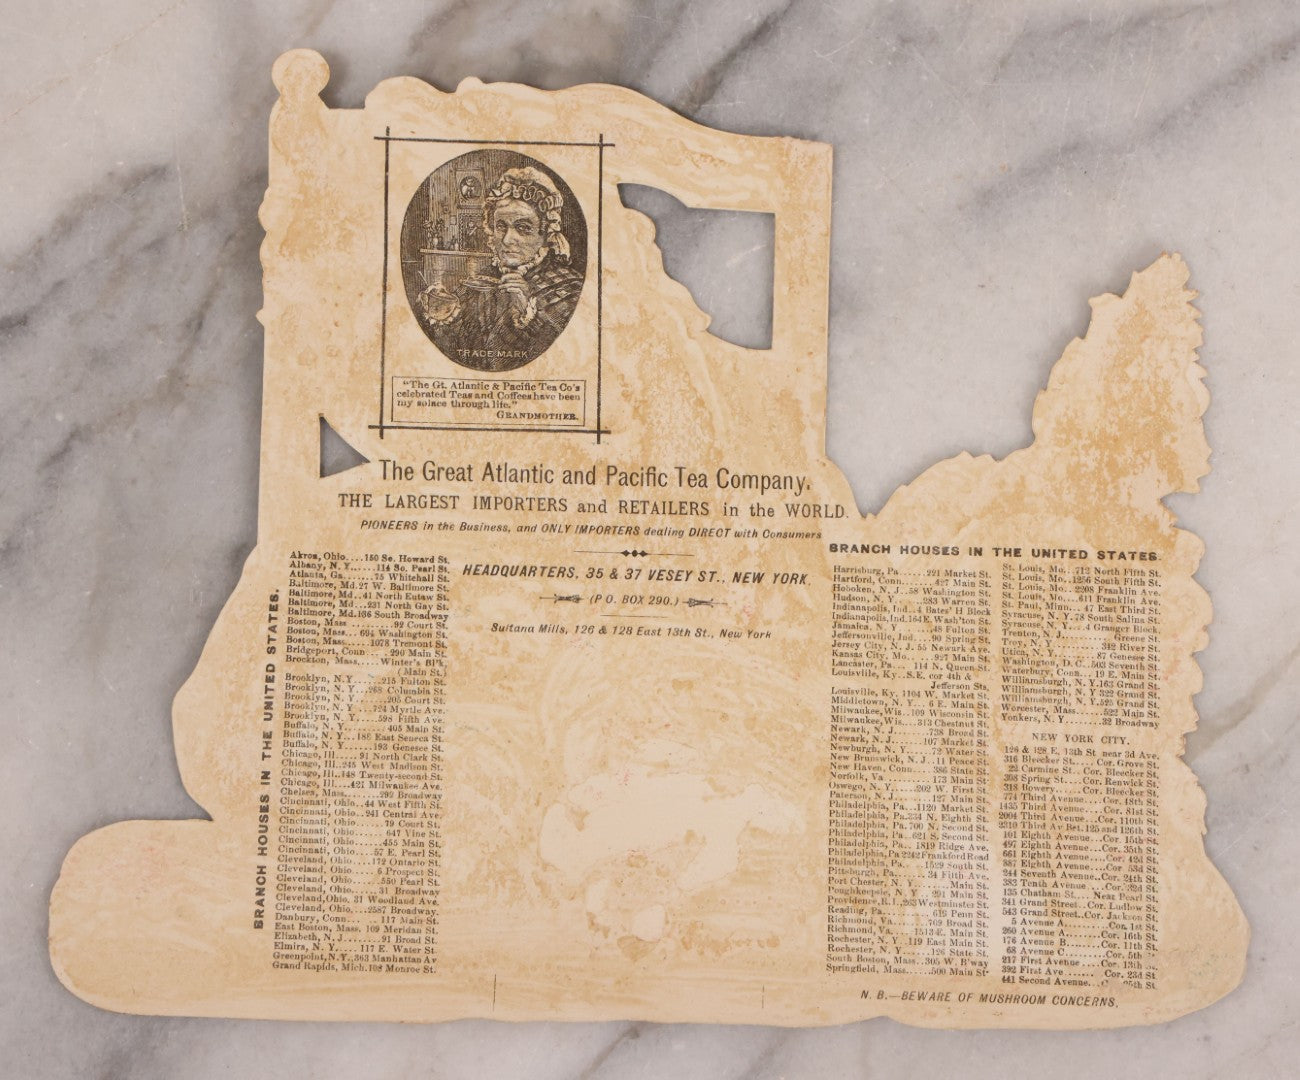 TRADE MARK
"The Gt. Atlantic & Pacific Tea Co's
celebrated Teas and Coffees have been
my solace through life."
GRANDMOTHER.
The Great Atlantic and Pacific Tea Company.
THE LARGEST IMPORTERS and RETAILERS in the WORLD.
PIONEERS in the Business, and ONLY IMPORTERS dealing DIRECT with Consumers
HEADQUARTERS, 35 & 37 VESEY ST., NEW YORK,
(P.O. BOX 290.)
Sultana Mills, 126 & 128 East 13th St., New York
BRANCH HOUSES IN THE UNITED STATES.
Akron, Ohio....150 So. Howard St.
Albany, N. Y......114 So. Pearl St.
Atlanta, Ga.......75 Whitehall St.
Baltimore, Md. 27 W. Baltimore St.
Baltimore, Md..41 North Eutaw St.
Baltimore, Md...231 North Gay St.
Baltimore, Md.136 South Broadway
Boston, Mass .........92 Court St.
Boston, Mass... 694 Washington St.
Boston, Mass.....1078 Tremont St.
Bridgeport, Conn .....290 Main St.
Brockton, Mass.....Winter's Bl'k,
(Main St.)
Brooklyn, N.Y ......215 Fulton St.
Brooklyn, N.Y...268 Columbia St.
Brooklyn, N. Y .......205 Court St.
Brooklyn, N. Y....724 Myrtle Ave.
Brooklyn, N. Y....598 Fifth Ave.
Buffalo, N. Y.........405 Main St.
Buffalo, N. Y...188 East Seneca St.
Buffalo, N. Y......193 Genesee St.
Chicago, Ill.....91 North Clark St.
Chicago, Ill..245 West Madison St.
Chicago, Ill..148 Twenty-second St.
Chicago, Ill....421 Milwaukee Ave.
Chelsea, Mass........292 Broadway
Cincinnati, Ohio..44 West Fifth St.
Cincinnati, Ohio..241 Central Ave.
Cincinnati, Ohio......79 Court St.
Cincinnati, Ohio......647 Vine St.
Cincinnati, Ohio.....455 Main St.
Cincinnati, Ohio....57 E. Pearl St.
Cleveland, Ohio....172 Ontario St.
Cleveland, Ohio.....6 Prospect St.
Cleveland, Ohio......550 Pearl St.
Cleveland, Ohio.....31 Broadway
Cleveland, Ohio. 31 Woodland Ave.
Cleveland, Ohio....2587 Broadway.
Danbury, Conn.... 117 Main St.
East Boston, Mass. 109 Meridan St.
Elizabeth, N. J.......91 Broad St.
Elmira, N. Y.....117 E. Water St.
Greenpoint, N.Y..363 Manhattan Av
Grand Rapids, Mich.108 Monroe St.
BRANCH HOUSES IN THE UNITED STATES.
Harrisburg, Pa......221 Market St.
Hartford, Conn.......427 Main St.
Hoboken, N. J..58 Washington St.
Hudson, N. Y......283 Warren St.
Indianapolis, Ind..4 Bates' H Block
Indianapolis, Ind.164 E. Wash'ton St.
Jamaica, N. Y .......48 Fulton St.
Jeffersonville, Ind...90 Spring St.
Jersey City, N. J. 55 Newark Ave.
Kansas City, Mo.....927 Main St.
Lancaster, Pa.... 114 N. Queen St.
Louisville, Ky...S.E. cor 4th &
Jefferson Sts.
Louisville, Ky. 1104 W. Market St.
Middletown, N. Y... 6 E. Main St.
Milwaukee, Wis...109 Wisconsin St.
Milwaukee, Wis....313 Chestnut St.
Newark, N. J.......738 Broad St.
Newark, N. J......107 Market St.
Newburgh, N. Y.....72 Water St.
New Brunswick, N.J ..11 Peace St.
New Haven, Conn....386 State St.
Norfolk, Va ..........173 Main St.
Oswego, N. Y......202 W. First St.
Paterson, N. J.......127 Main St.
Philadelphia, Pa...1120 Market St.
Philadelphia, Pa.334 N. Eighth St.
Philadelphia, Pa. 700 N. Second St.
Philadelphia, Pa..621 S. Second St.
Philadelphia, Pa.. 1819 Ridge Ave.
Philadelphia, Pa 2242 Frankford Road
Philadelphia, Pa....1529 South St.
Pittsburgh, Pa......34 Fifth Ave.
Port Chester, N. Y.......Main St.
Poughkeepsie, N. Y .. 291 Main St.
Providence, R.I..263 Westminster St.
Reading, Pa..........619 Penn St.
Richmond, Va.......709 Broad St.
Richmond, Va.....1513 E. Main St.
Rochester, N. Y..119 East Main St.
Rochester, N. Y.....126 State St.
South Boston, Mass. 305 W. B'way
Springfield, Mass.....500 Main St.
St. Louis, Mo...712 North Fifth St.
St. Louis, Mo..1256 South Fifth St.
St. Louis, Mo...2208 Franklin Ave.
St. Louis, Mo....611 Franklin Ave.
St. Paul, Minn... 47 East Third St.
Syracuse, N. Y.78 South Salina St.
Syracuse, N. Y....4 Granger Block.
Trenton, N. J...........Greene St.
Troy, N. Y...........342 River St.
Utica, N. Y........87 Genesee St.
Washington, D. C..503 Seventh St.
Waterbury, Conn... 19 E. Main St.
Williamsburgh, N. Y.163 Grand St.
Williamsburgh, N. Y 322 Grand St.
Williamsburgh, N. Y.525 Grand St.
Worcester, Mass......522 Main St.
Yonkers, N. Y........32 Broadway
NEW YORK CITY.
126 & 128 E. 13th St near 3d Ave.
316 Bleecker St....Cor. Grove St.
22 Carmine St...Cor. Bleecker St.
308 Spring St....Cor. Renwick St.
318 Bowery.....Cor. Bleecker St.
774 Third Avenue....Cor. 48th St.
1435 Third Avenue....Cor. 81st St.
2004 Third Avenue...Cor. 110th St.
2310 Third Av Bet. 125 and 126th St.
101 Eighth Avenue...Cor 15th St.
497 Eighth Avenue...Cor. 35th St.
661 Eighth Avenue....Cor. 42d St.
887 Eighth Avenue....Cor 53d St.
244 Seventh Avenue...Cor. 24th St.
383 Tenth Avenue ....Cor. 32d St.
135 Chatham St.... Near Pearl St.
341 Grand Street..Cor. Ludlow St.
543 Grand Street..Cor. Jackson St.
5 Avenue A...........Cor. 1st St.
260 Avenue A........Cor. 16th St.
176 Avenue B........Cor. 11th St.
68 Avenue C..........Cor. 5th
217 First Avenue....Cor. 13th
392 First Ave .......Cor. 23d St.
441 Second Avenue...C 25th St.
N. B.—BEWARE OF MUSHROOM CONCERNS.